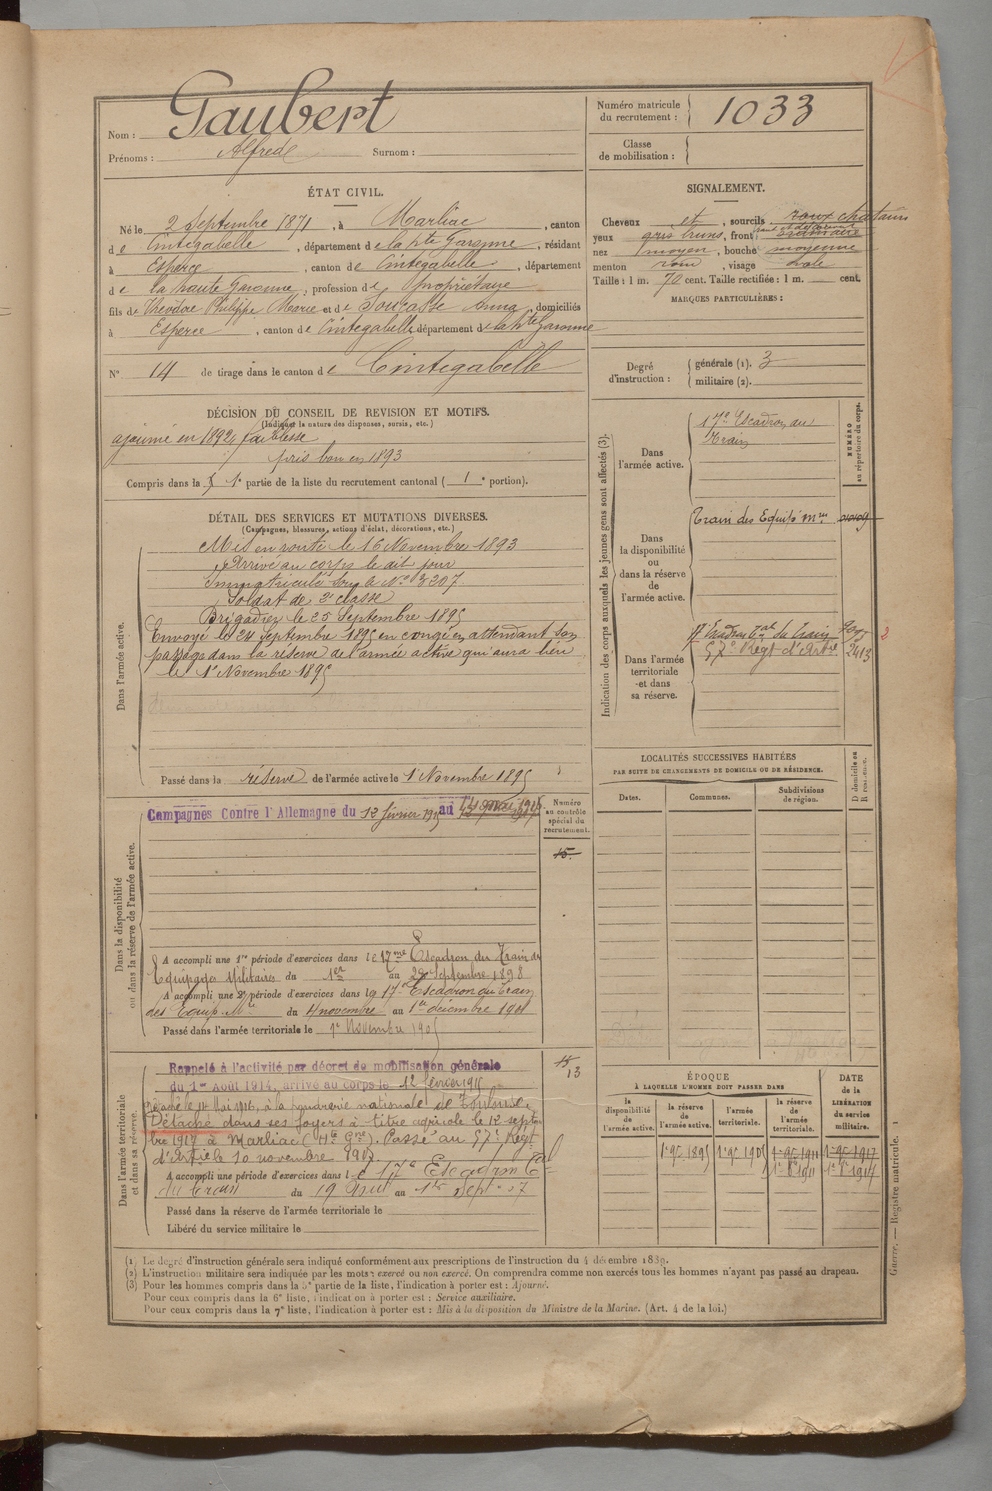 Nom : Gaubert
Prénoms : Alfred Surnom :
Numéro matricule du recrutement : 1033
Classe de mobilisation :
ÉTAT CIVIL.
Né le 2 Septembre 1871, à Marliac, canton
de Cintegabelle, département de la hte Garonne, résidant
à Esperce, canton de Cintegabelle, département
de la haute Garonne, profession de Propriétaire
fils de Théodore Philippe Marie et de Soucasse Anna, domiciliés
à Esperce, canton de Cintegabelle département de la hte Garonne
N° 14 de tirage dans le canton de Cintegabelle
SIGNALEMENT.
Cheveux et, sourcils roux chatains
yeux gris bruns, front ordinaire
nez moyen, bouche moyenne
menton rond, visage ovale
Taille : 1 m. 70 cent. Taille rectifiée : 1 m. cent.
MARQUES PARTICULIÈRES :
Degré d'instruction : générale (1). 3
militaire (2).
DÉCISION DU CONSEIL DE REVISION ET MOTIFS.
(Indiquer la nature des dispenses, sursis, etc.)
ajourné en 1892, faiblesse
pris bon en 1893
Compris dans la 1e partie de la liste du recrutement cantonal ( 1 e portion).
DÉTAIL DES SERVICES ET MUTATIONS DIVERSES.
(Campagnes, blessures, actions d'éclat, décorations, etc.)
Dans l'armée active.
Mis en route le 16 Novembre 1893
Arrivé au corps le dit jour
Immatriculé sous le N° 3207.
Soldat de 2e classe
Brigadier le 25 Septembre 1895
Envoyé le 24 septembre 1895 en congé en attendant son
passage dans la réserve de l'armée active qui aura lieu
le 1er Novembre 1895
Passé dans la réserve de l'armée active le 1er Novembre 1895
Indication des corps auxquels les jeunes gens sont affectés (3).
NUMÉRO au répertoire du corps.
Dans l'armée active.
17e Escadron du
Train
Dans la disponibilité ou dans la réserve de l'armée active.
Train des Equip. Mres
Dans l'armée territoriale et dans sa réserve.
17e Escadron tal du Train
57e Régt d'Artie 2413
2
LOCALITÉS SUCCESSIVES HABITÉES
PAR SUITE DE CHANGEMENTS DE DOMICILE OU DE RÉSIDENCE.
Dates. Communes. Subdivisions de région. D domicile ou R résidence.
Dans la disponibilité ou dans la réserve de l'armée active.
Campagnes Contre l'Allemagne du 12 février 1915 au
Numéro au contrôle spécial du recrutement.
15
A accompli une 1re période d'exercices dans le 17me Escadron du Train des
Equipages Militaires du 1er au 28 Septembre 1898
A accompli une 2e période d'exercices dans le 17e Escadron du Train
des Equip. Mres du 4 novembre au 1er décembre 1901
Passé dans l'armée territoriale le 1er Novembre 1905
Dans l'armée territoriale et dans sa réserve.
Rappelé à l'activité par décret de mobilisation générale
du 1er Août 1914, arrivé au corps le 12 février 1915
15
13
le 14 Mai 1916, à la poudrerie nationale de Toulouse.
Détaché dans ses foyers à titre agricole le 12 septem
bre 1917 à Marliac (Hte Gne). Passé au 57e Régt
d'Artie le 10 novembre 1917.
A accompli une période d'exercices dans le 17e Escadron tal
du train du 19 août au 1er Sept. 07
Passé dans la réserve de l'armée territoriale le
Libéré du service militaire le
ÉPOQUE
À LAQUELLE L'HOMME DOIT PASSER DANS
la disponibilité de l'armée active. la réserve de l'armée active. l'armée territoriale. la réserve de l'armée territoriale.
DATE de la LIBÉRATION du service militaire.
1 9e 1895 1 9e 1905 1 9e 1911 1 9e 1917
(1) Le degré d'instruction générale sera indiqué conformément aux prescriptions de l'instruction du 4 décembre 1889.
(2) L'instruction militaire sera indiquée par les mots : exercé ou non exercé. On comprendra comme non exercés tous les hommes n'ayant pas passé au drapeau.
(3) Pour les hommes compris dans la 5e partie de la liste, l'indication à porter est : Ajourné.
Pour ceux compris dans la 6e liste, l'indication à porter est : Service auxiliaire.
Pour ceux compris dans la 7e liste, l'indication à porter est : Mis à la disposition du Ministre de la Marine. (Art. 4 de la loi.)
Guerre. — Registre matricule. 1